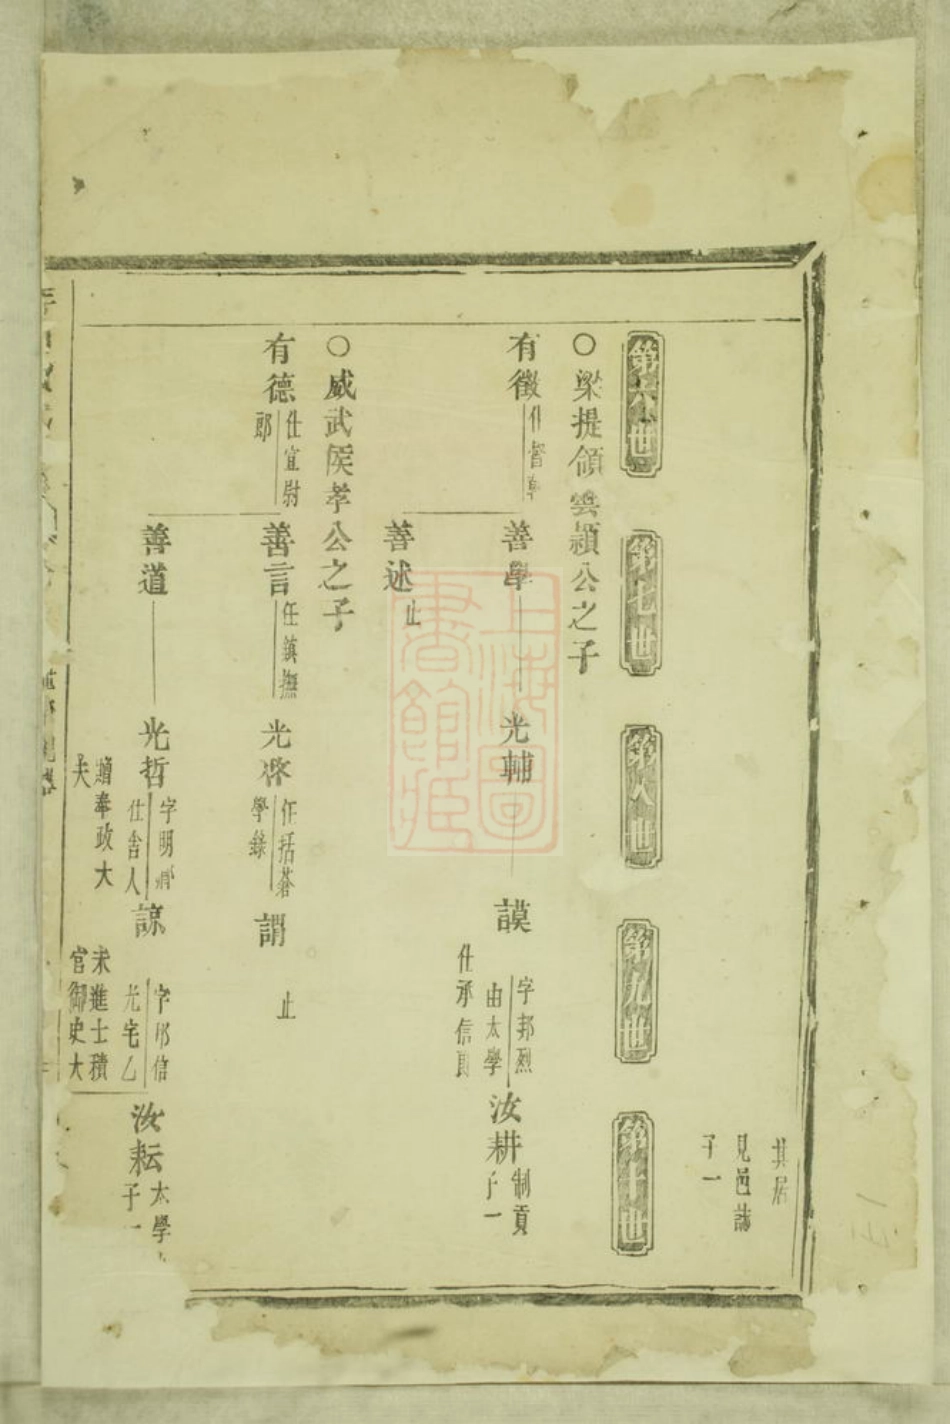 其居
見邑誌
子一
第六世
第七世
第八世
第九世
第十世
○梁提領雲穎公之子
有徵
仕督
善學
光輔
謨
字邦烈
由太學
仕承信郎
汝耕
制貢
子一
善述
止
○威武侯孝公之子
有德
仕宣尉
郎
善言
任鎮撫
光啓
任括蒼
學錄
謂
止
善道
光哲
字明
仕舍人
贈奉政大
夫
諒
字邦信
光宅乙
未進士積
官御史大
汝耘
太學
子一
上海圖書館藏